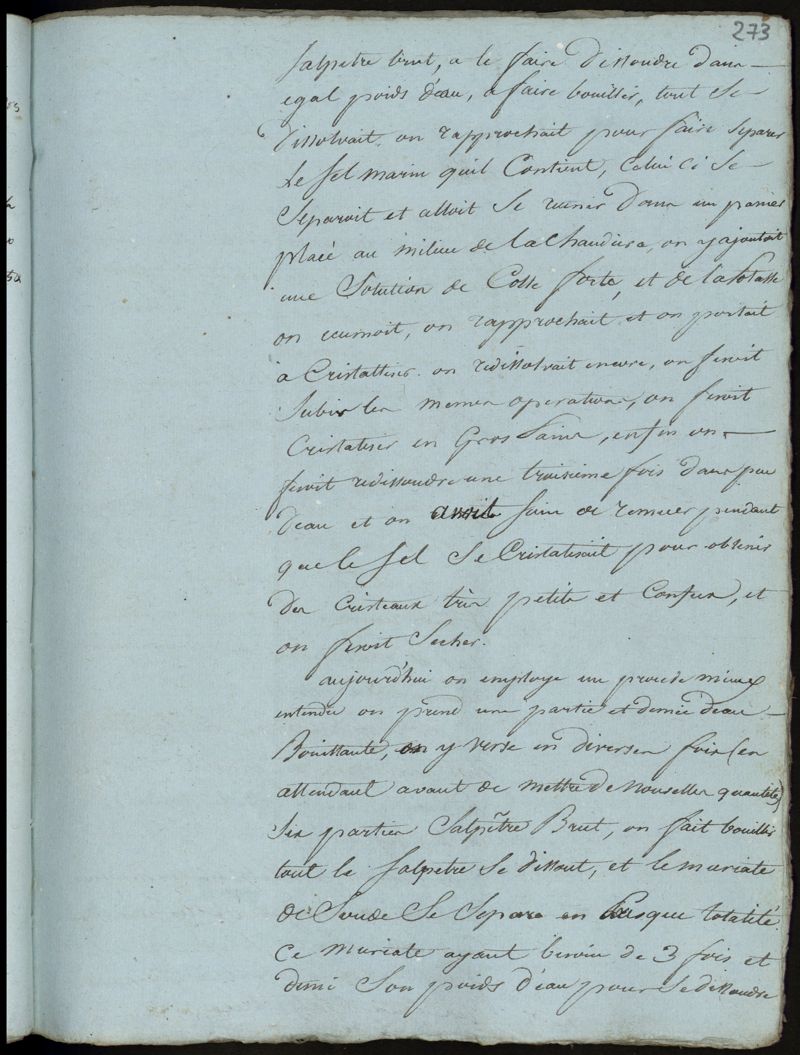 273
salpetre brut, a le faire dissoudre dans
egal poids d'eau, a faire bouillir, tout se
dissolvait, on rapprochait pour faire separer
le sel marin quil Contient, Celui ci se
separoit et alloit se reunir dans un panier
placé au milieu de la Chaudiere, on y ajoutait
une Solution de Colle forte, et de la Potasse
on ecumoit, on rapprochait et on portait
a Cristalliser. on redissolvait encore, on feroit
subir les memes operations, on feroit
Cristaliser en Gros Pains, enfin on
feroit redissoudre une troisieme fois dans peu
d'eau et on avoit soin de remuer pendant
que le sel se Cristalisait pour obtenir
des Cristeaux très petits et Confus, et
on feroit Secher.
aujourd'hui on employe un procede mieux
entendu on prend une partie et demie d'eau
Bouillante, on y verse en diverses fois (en
attendant avant de mettre de Nouvelles quantités)
Six parties Salpêtre Brut, on fait bouillir
tout le salpetre se dissout, et le muriate
de Soude Se Separe en Presque totalité.
Ce muriate ayant besoin de 3 fois et
demi Son poids d'eau pour se dissoudre